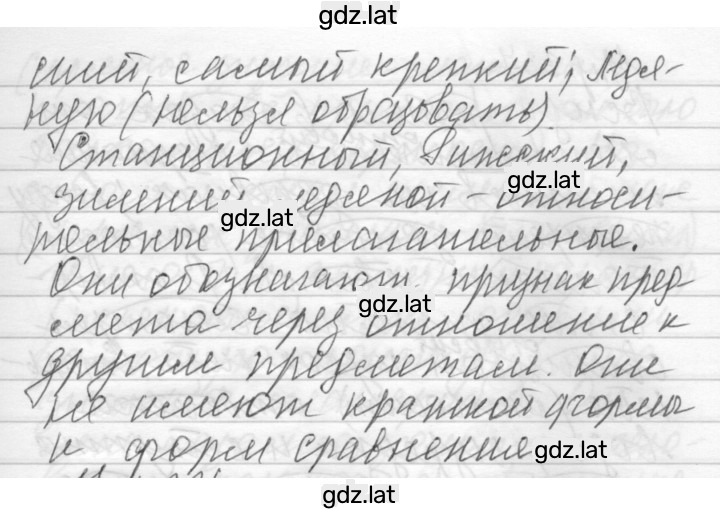 gdz.lat
ший, самый крепкий; ледя-
ную (нельзя образовать)
Станционный, Рижский,
gdz.lat
зимний, ледяной - относи-
gdz.lat
тельные прилагательные.
Они обозначают признак пред-
gdz.lat
мета через отношение к
другим предметам. Они
не имеют краткой формы
и форм сравнения
gdz.lat
gdz.lat